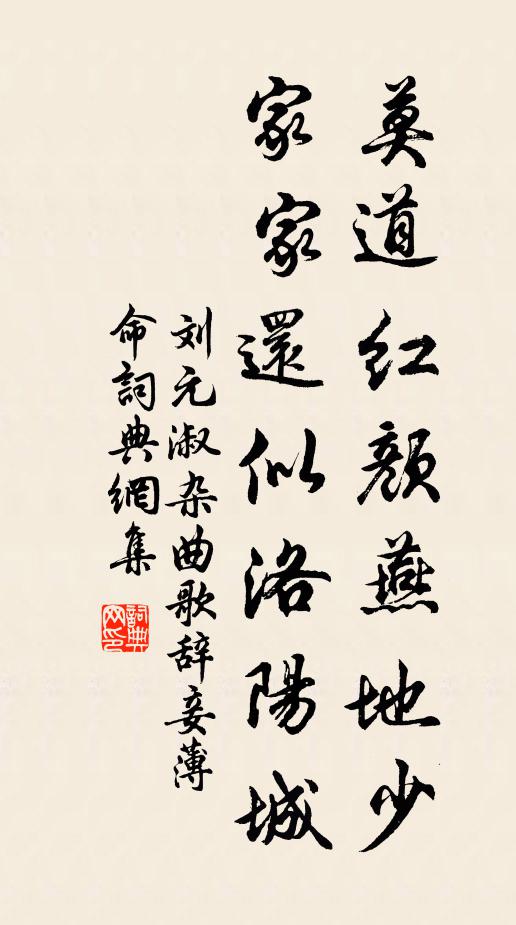 莫道红顔燕地少
家家還似洛陽城
刘元淑杂曲歌辞妾薄
命詞典網集
詞典
网印